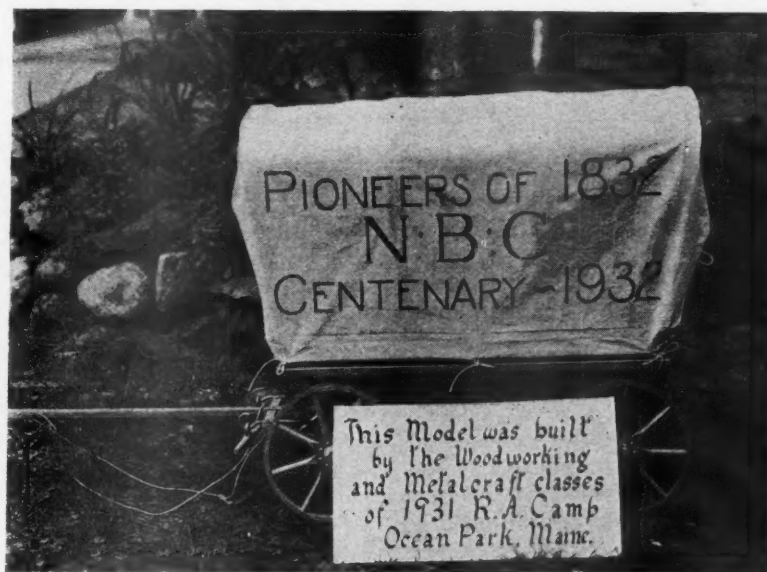 PIONEERS OF 1832
N·B·C
CENTENARY - 1932
This Model was built
by the Woodworking
and Metalcraft classes
of 1931 R.A. Camp
Ocean Park, Maine.